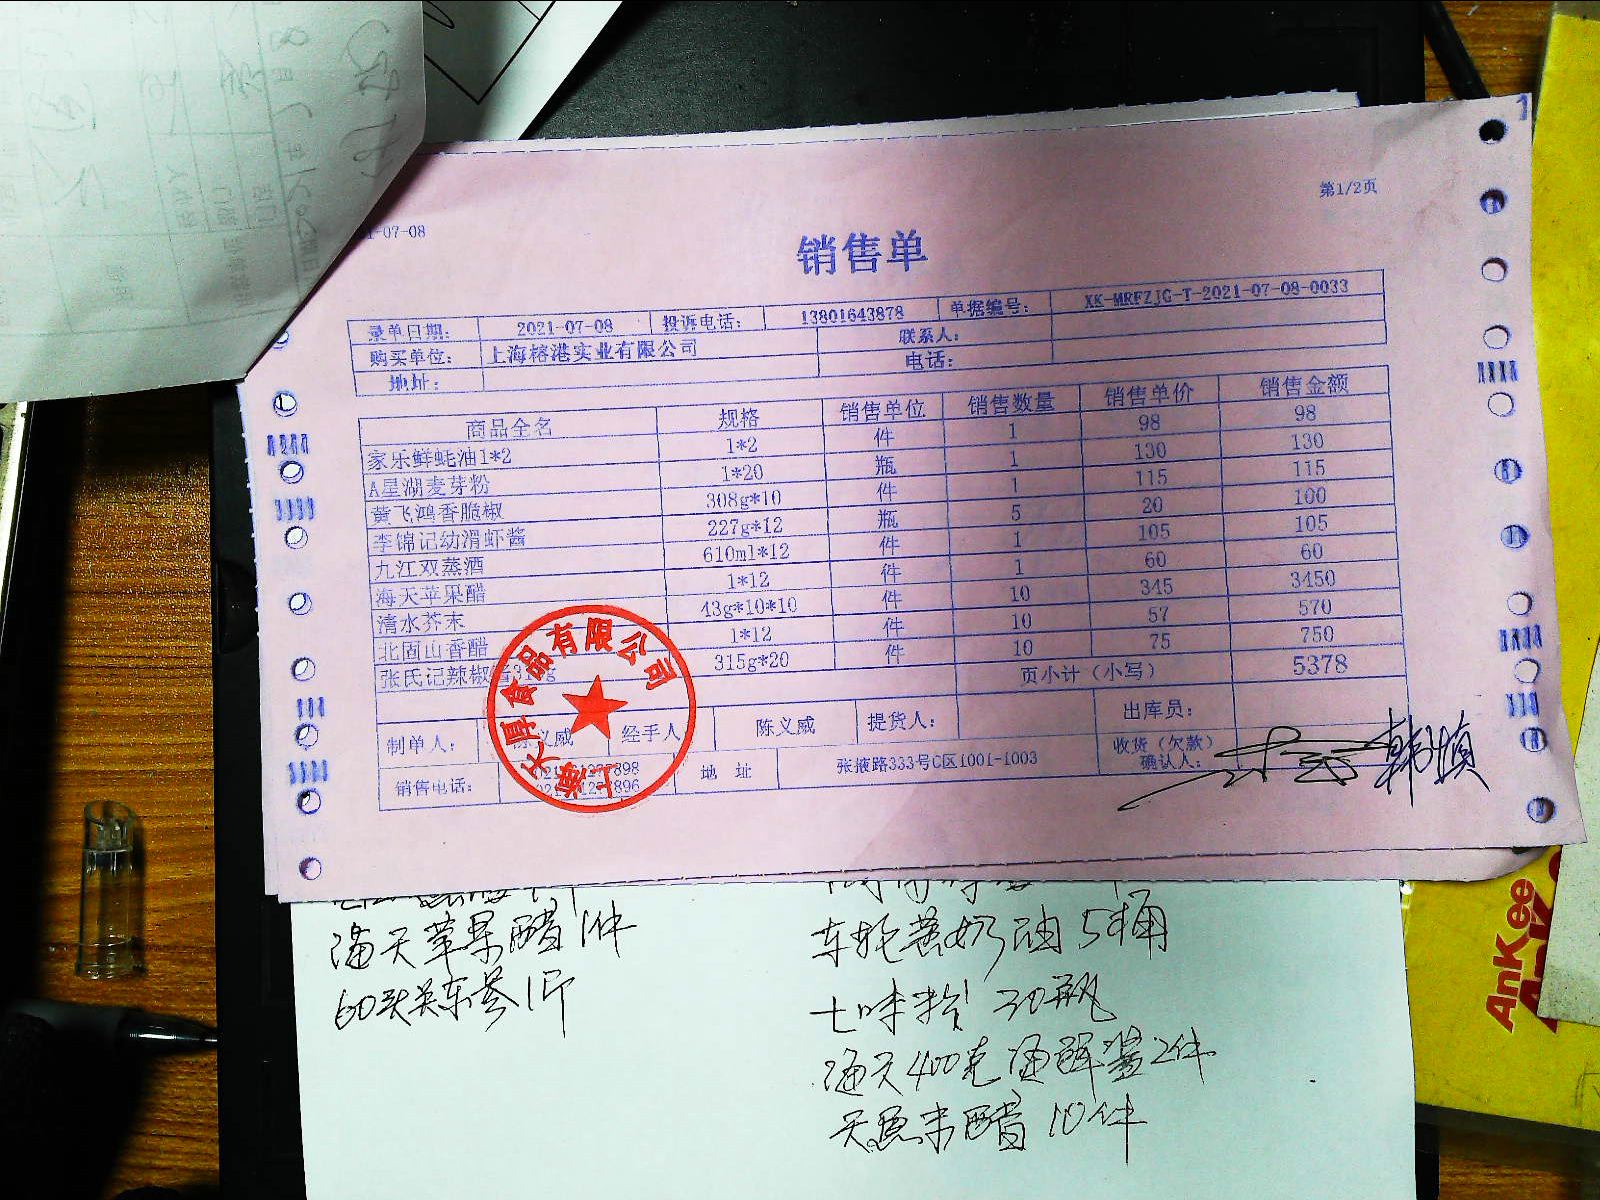 第1/2页
1-07-08
销售单
录单日期: 2021-07-08 投诉电话: 13801643878 单据编号: XK-MRFZJG-T-2021-07-08-0033
购买单位: 上海榕港实业有限公司 联系人:
地址: 电话:
商品全名 规格 销售单位 销售数量 销售单价 销售金额
家乐鲜蚝油1*2 1*2 件 1 98 98
A星湖麦芽粉 1*20 瓶 1 130 130
黄飞鸿香脆椒 308g*10 件 1 115 115
李锦记幼滑虾酱 227g*12 瓶 5 20 100
九江双蒸酒 610ml*12 件 1 105 105
海天苹果醋 1*12 件 1 60 60
清水芥末 43g*10*10 件 10 345 3450
北固山香醋 1*12 件 10 57 570
张氏记辣椒 315g*20 件 10 75 750
页小计（小写） 5378
制单人: 陈义威 经手人 陈义威 提货人: 出库员:
销售电话: 地 址 张掖路333号C区1001-1003 收货（欠款）确认人:
韩
上海大厚食品有限公司
海天苹果醋1件
60头关东参1斤
车轮黄奶油5桶
七味粉 30瓶
海天400克海鲜酱2件
米醋10件
AnKee